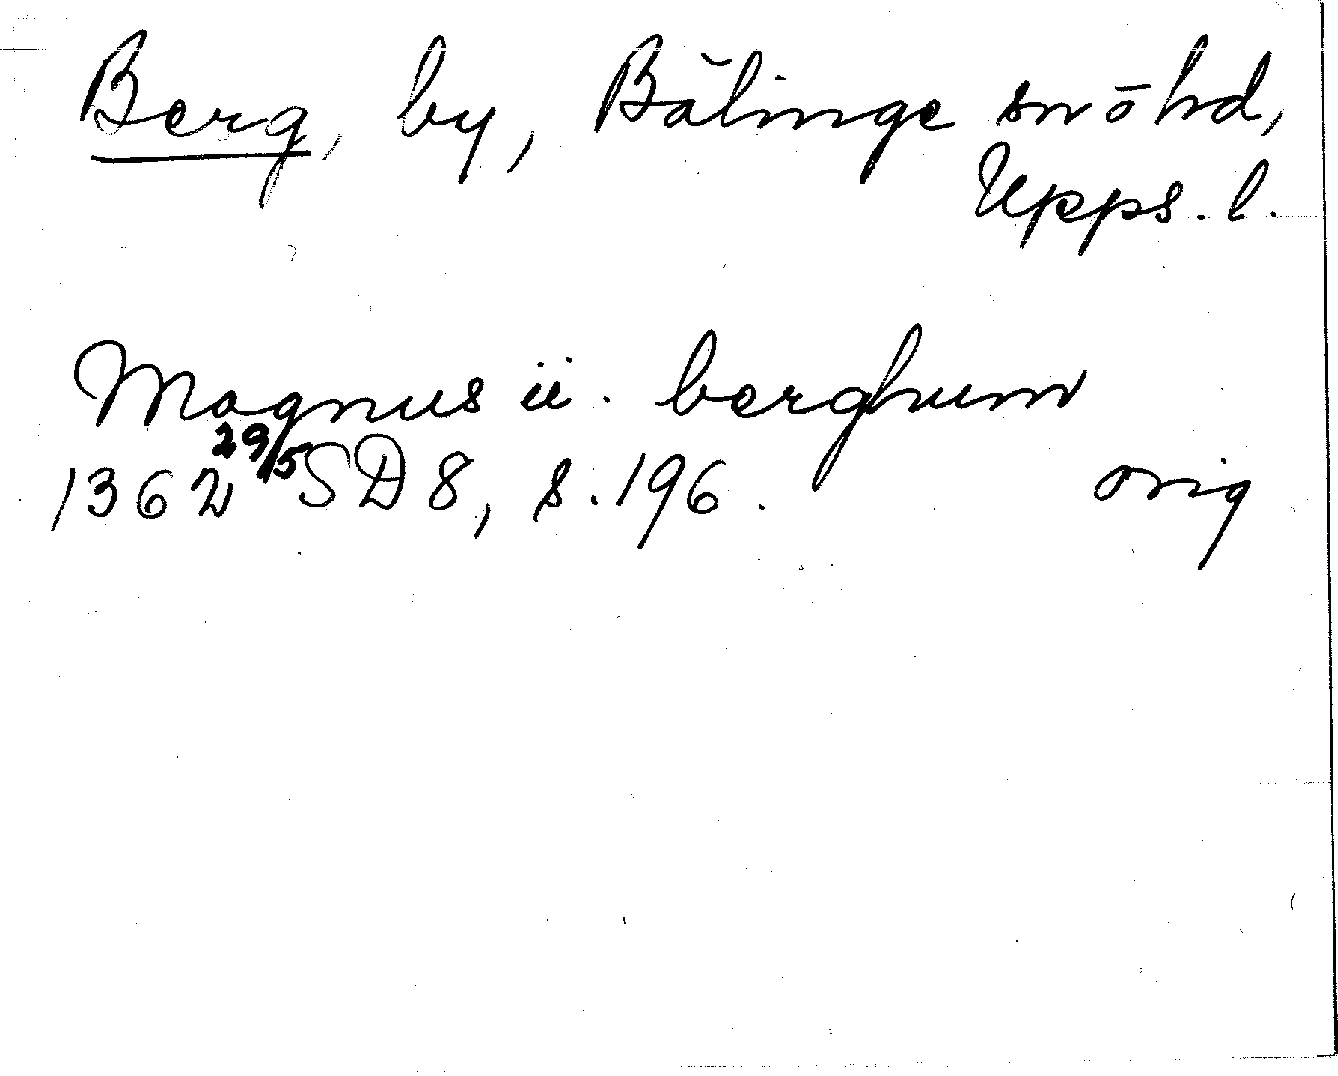 Berg, by, Bälinge sn o hd,
Upps. l.
Magnus ii. berghum
1362 29/5 SD 8, s. 196. orig